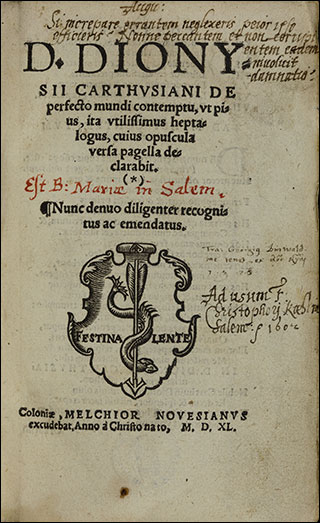 Augu:
Si increpare errantem neglexeris peior ipso
officieris. Nonne peccantem et non corripi
entem eadem
involvit
damnatio.
D. DIONY-
SII CARTHVSIANI DE
perfecto mundi contemptu, vt pi
us, ita vtilissimus hepta-
logus, cuius opuscula
versa pagella de-
clarabit.
(*)
Est B: Mariæ in Salem.
¶Nunc denuo diligenter recogni-
tus ac emendatus.
Ad usum f.
Christophorj
Salem. 1602
FESTINA LENTE
Coloniæ, MELCHIOR NOVESIANVS
excudebat, Anno à Christo nato, M. D. XL.